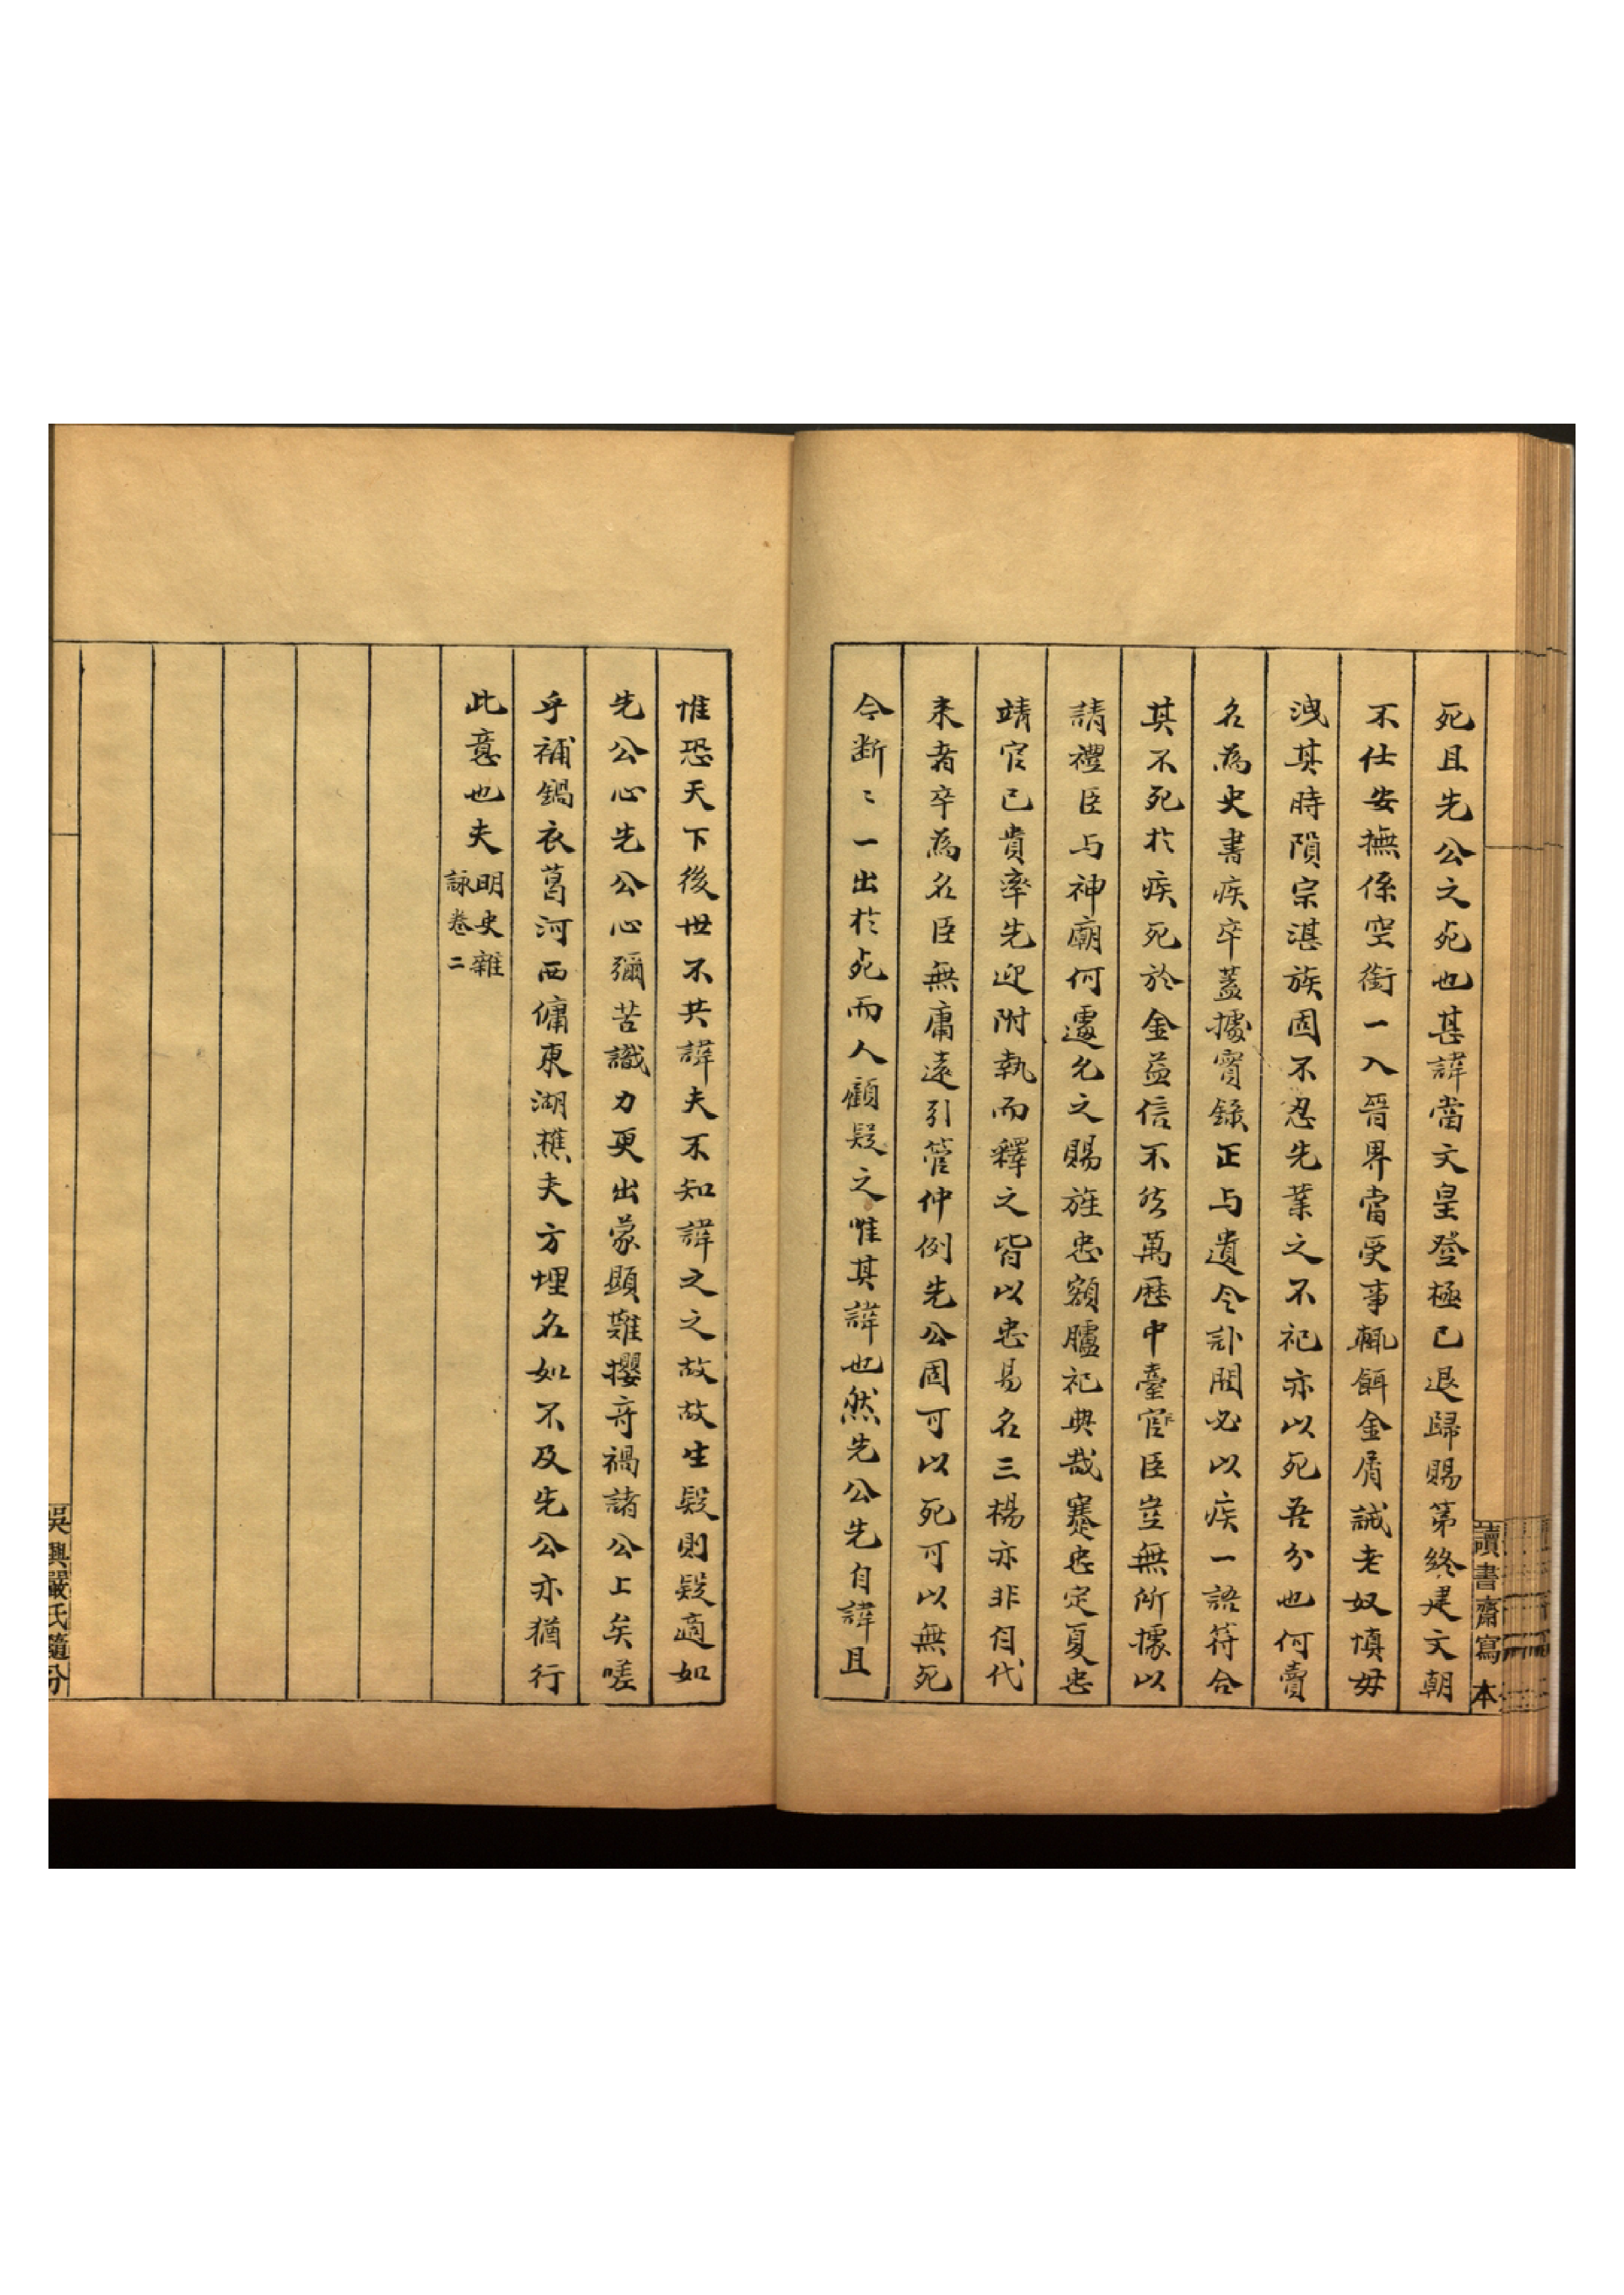 死且先公之死也甚諱當文皇登極已退歸賜第終建文朝
不仕安撫係空銜一入晉界當受事輒餌金屑誡老奴慎毋
洩其時隕宗湛族固不忍先業之不祀亦以死吾分也何賣
名為史書疾卒蓋據實錄正与遺令訃聞必以疾一語符合
其不死於疾死於金益信不然萬歷中臺官臣豈無所據以
請禮臣与神廟何遽允之賜旌忠額臚祀典哉蹇忠定夏忠
靖官已貴率先迎附執而釋之皆以忠易名三楊亦非自代
来者卒為名臣無庸遠引管仲例先公固可以死可以無死
今断〻一出於死而人顧疑之惟其諱也然先公先自諱且
讀書齋寫本
惟恐天下後世不共諱夫不知諱之之故故生疑則疑適如
先公心先公心彌苦識力更出蒙顯難攖奇禍諸公上矣嗟
乎補鍋衣葛河西傭東湖樵夫方埋名如不及先公亦猶行
此意也夫
明史雜
詠卷二
吳興嚴氏隨分